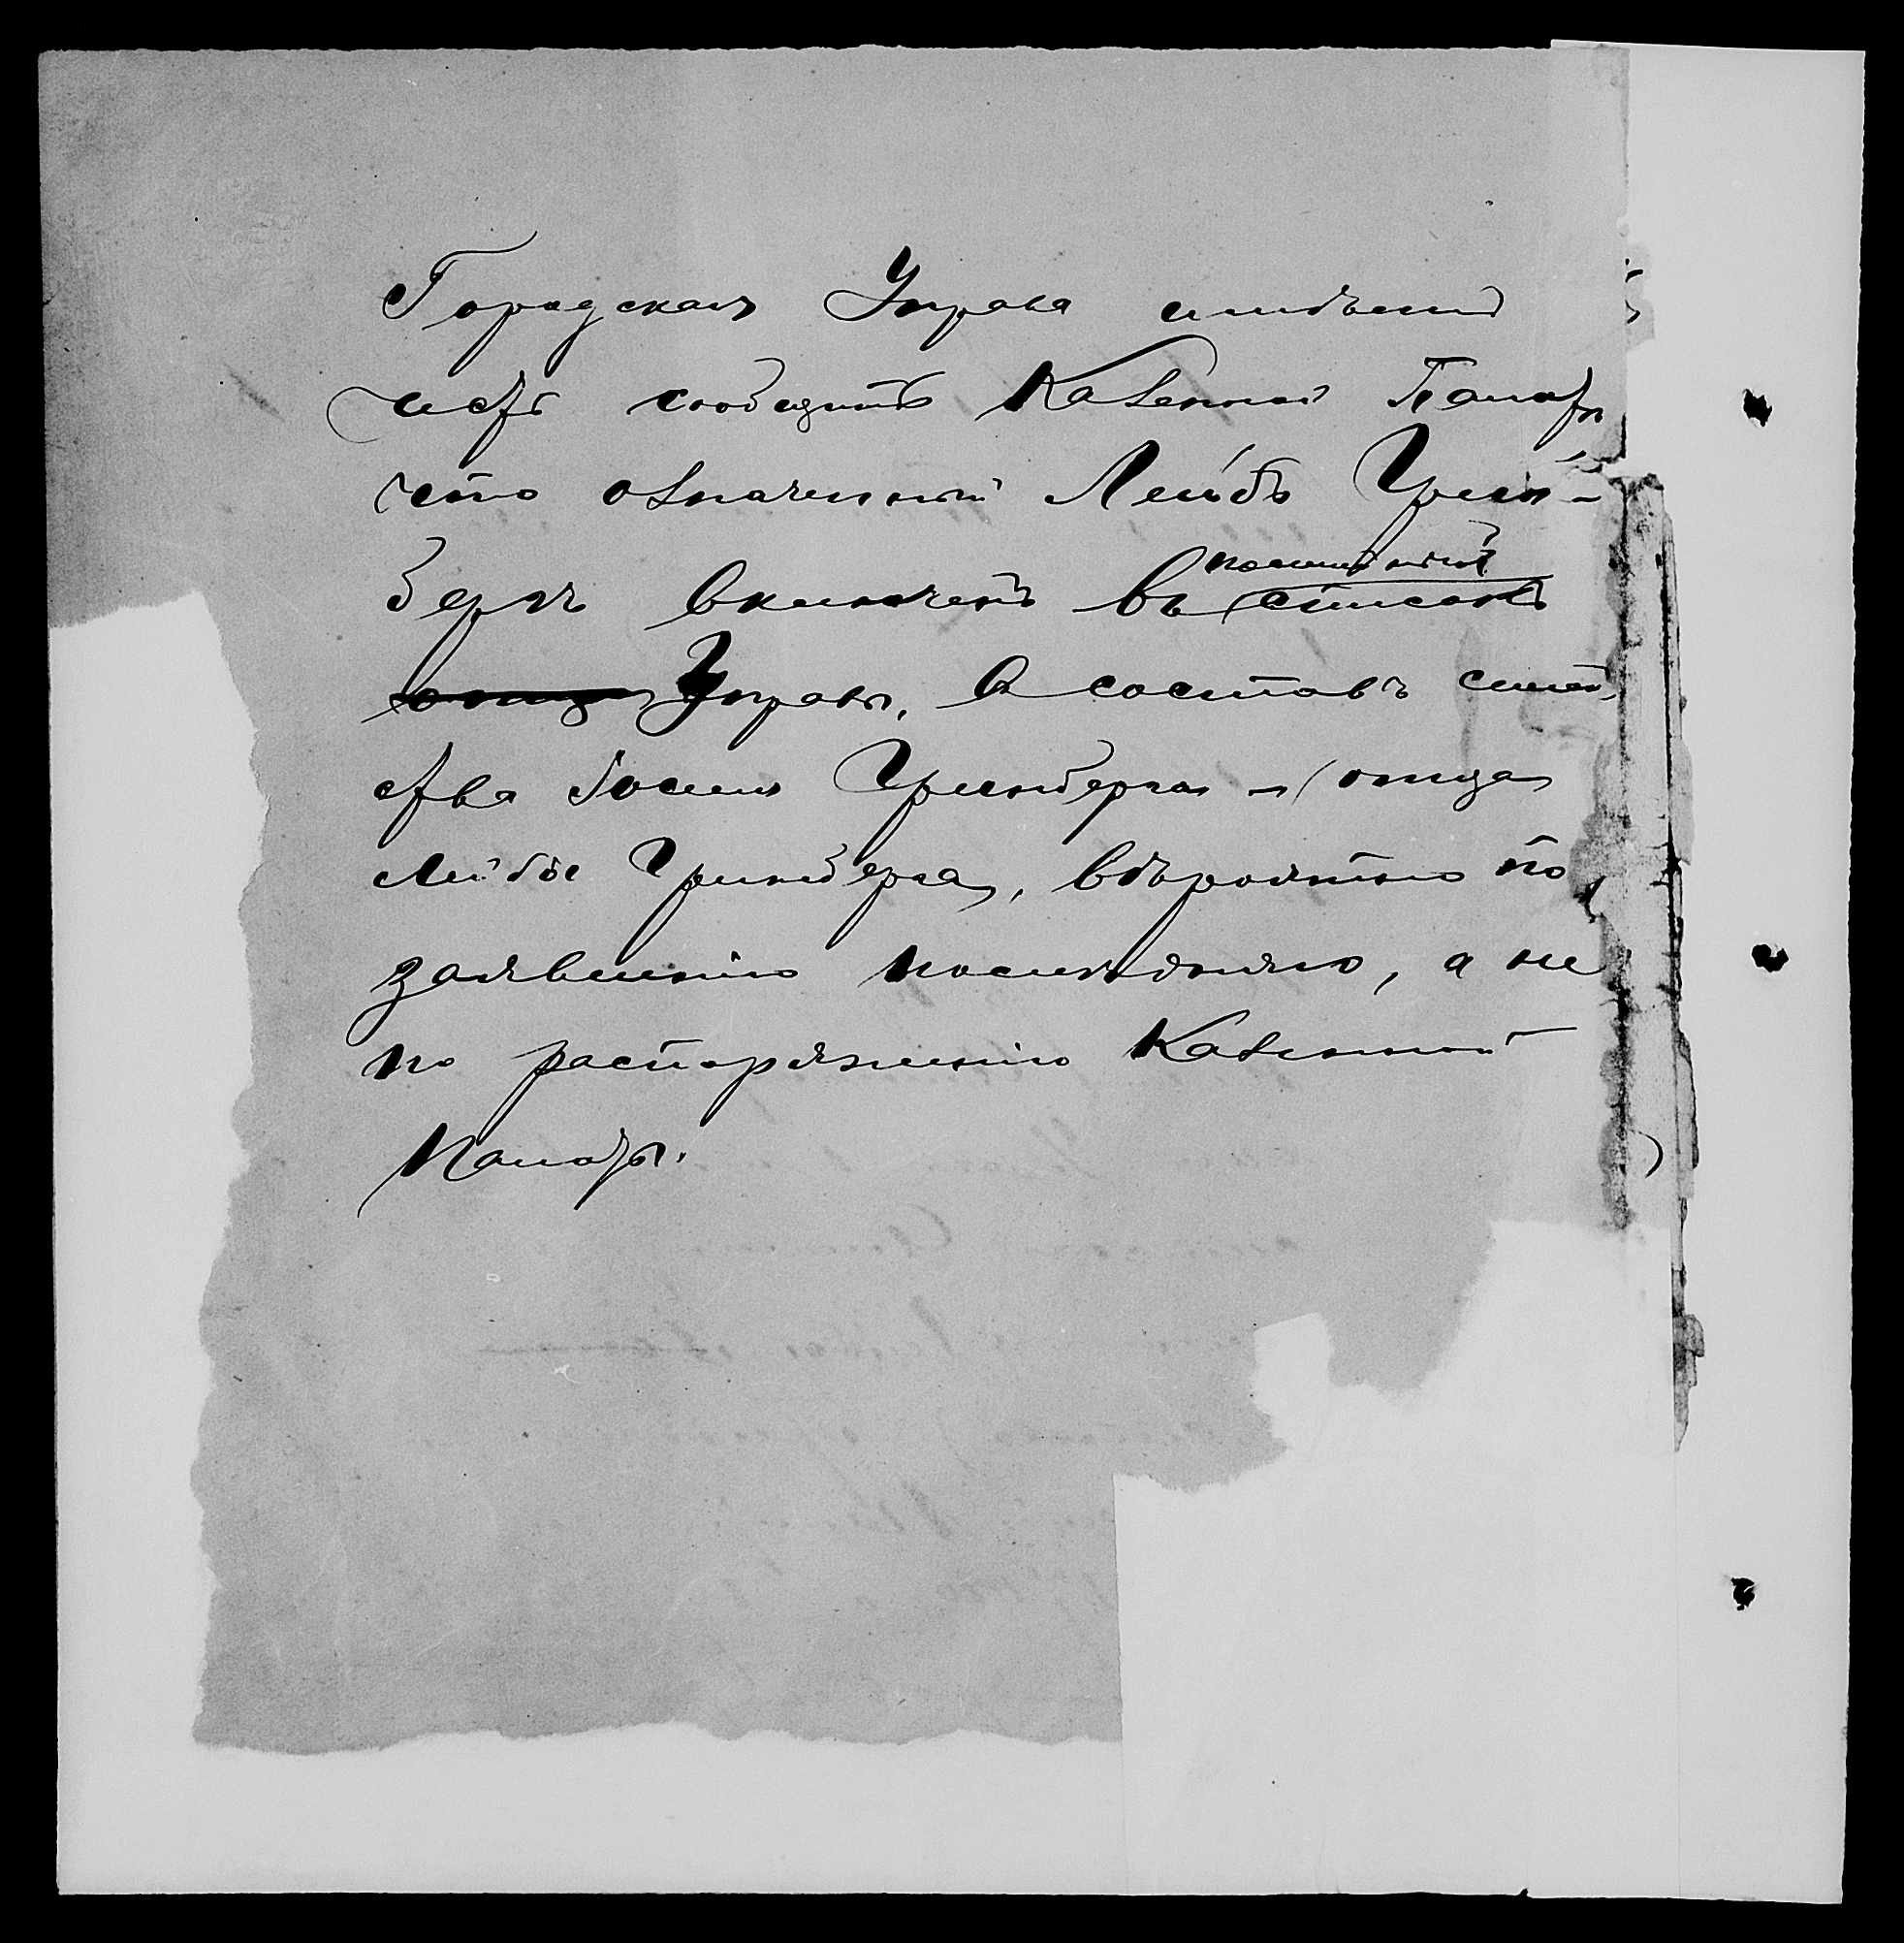 Городская Управа имѣетъ
честь сообщить Казенной Палатѣ,
что означенный Лейба Грин-
бергъ включенъ въ посемейный списокъ
Управы, в составъ семей-
ства Іоселя Гринберга — (отца
Лейбы Гринберга), вѣроятно по
заявленію послѣдняго, а не
по распоряженію Казенной
Палаты.